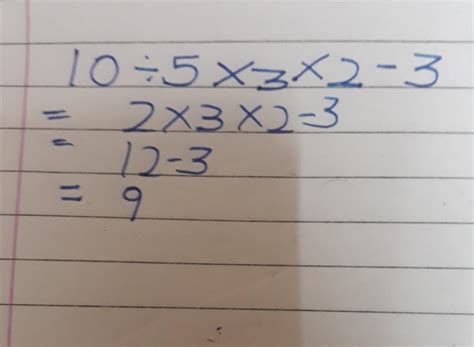 10÷5×3×2-3
= 2×3×2-3
= 12-3
= 9